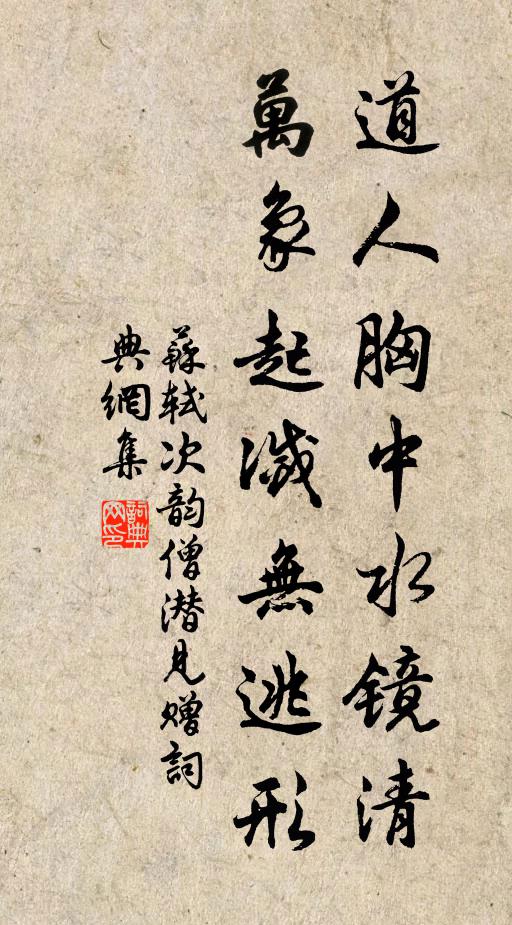 道人胸中水镜清
萬象起滅無逃形
蘇軾次韵僧潜見赠詞
典網集
詞典
网印